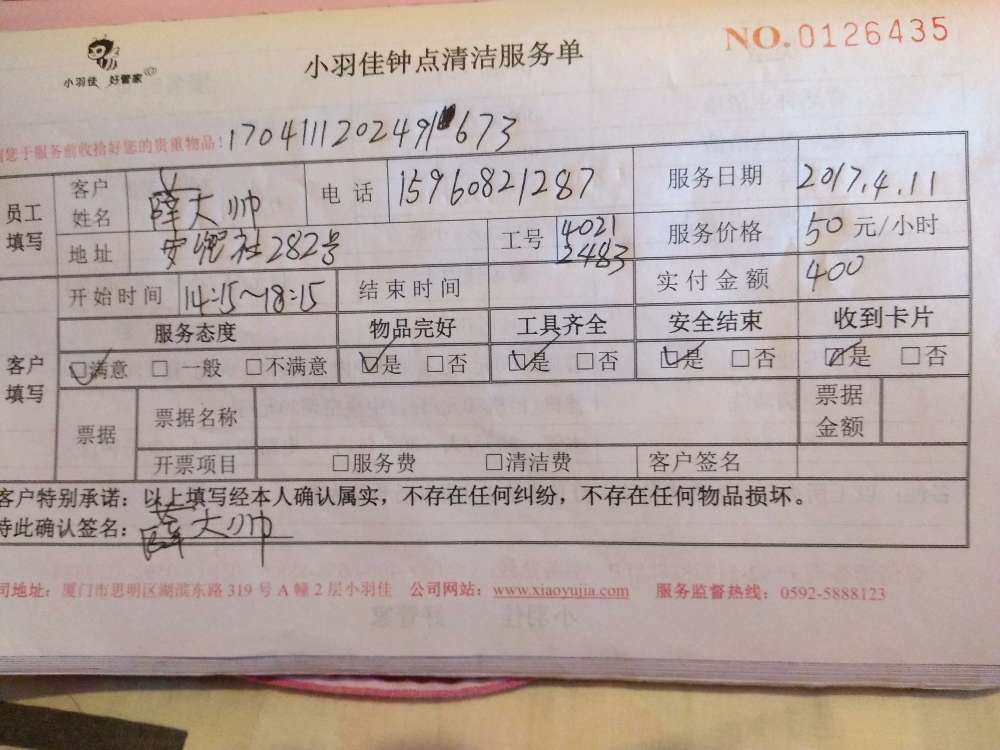 小羽佳 好管家
小羽佳钟点清洁服务单
NO.0126435
您于服务前收拾好您的贵重物品!
170411120249 673
员工填写 客户姓名 薛大帅 电话 15960821287 服务日期 2017.4.11
地址 社282号 工号 4021 2483 服务价格 50元/小时
客户填写 开始时间 14:15~18:15 结束时间 实付金额 400
服务态度 物品完好 工具齐全 安全结束 收到卡片
☑满意 □一般 □不满意 ☑是 □否 ☑是 □否 ☑是 □否 ☑是 □否
票据 票据名称 票据金额
开票项目 □服务费 □清洁费 客户签名
客户特别承诺：以上填写经本人确认属实，不存在任何纠纷，不存在任何物品损坏。
特此确认签名：薛大帅
司地址：厦门市思明区湖滨东路319号A幢2层小羽佳 公司网站：www.xiaoyujia.com 服务监督热线：0592-5888123